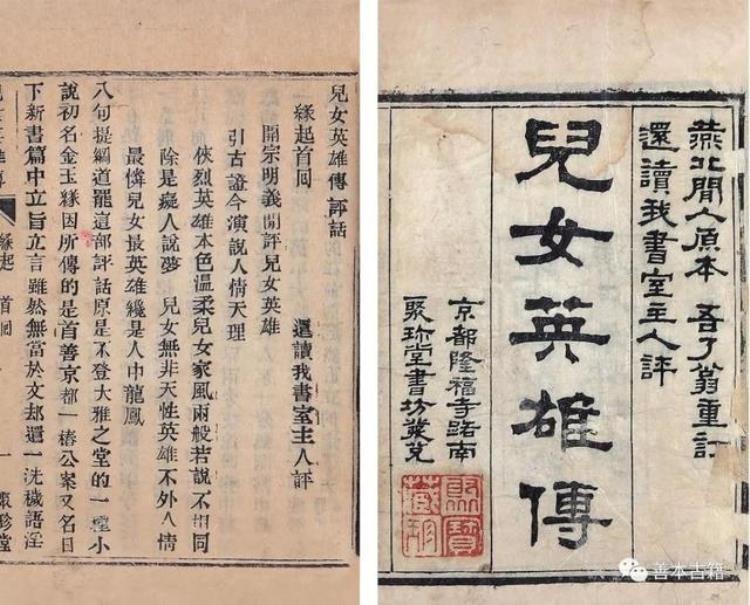 燕北閒人原本 吾了翁重訂
還讀我書室主人評
兒女英雄傳
京都隆福寺路南
聚珍堂書坊發兌
善本古籍
兒女英雄傳評話
緣起首回 還讀我書室主人評
開宗明義閒評兒女英雄
引古證今演說人情天理
俠烈英雄本色溫柔兒女家風兩般若說不相同
除是癡人說夢 兒女無非天性英雄不外人情
最憐兒女最英雄纔是人中龍鳳
八句提綱道罷這部評話原是不登大雅之堂的一種小
說初名金玉緣因所傳的是首善京都一樁公案又名日
下新書篇中立旨立言雖然無當於文却還一洗穢語淫
緣起 首回 一 聚珍堂